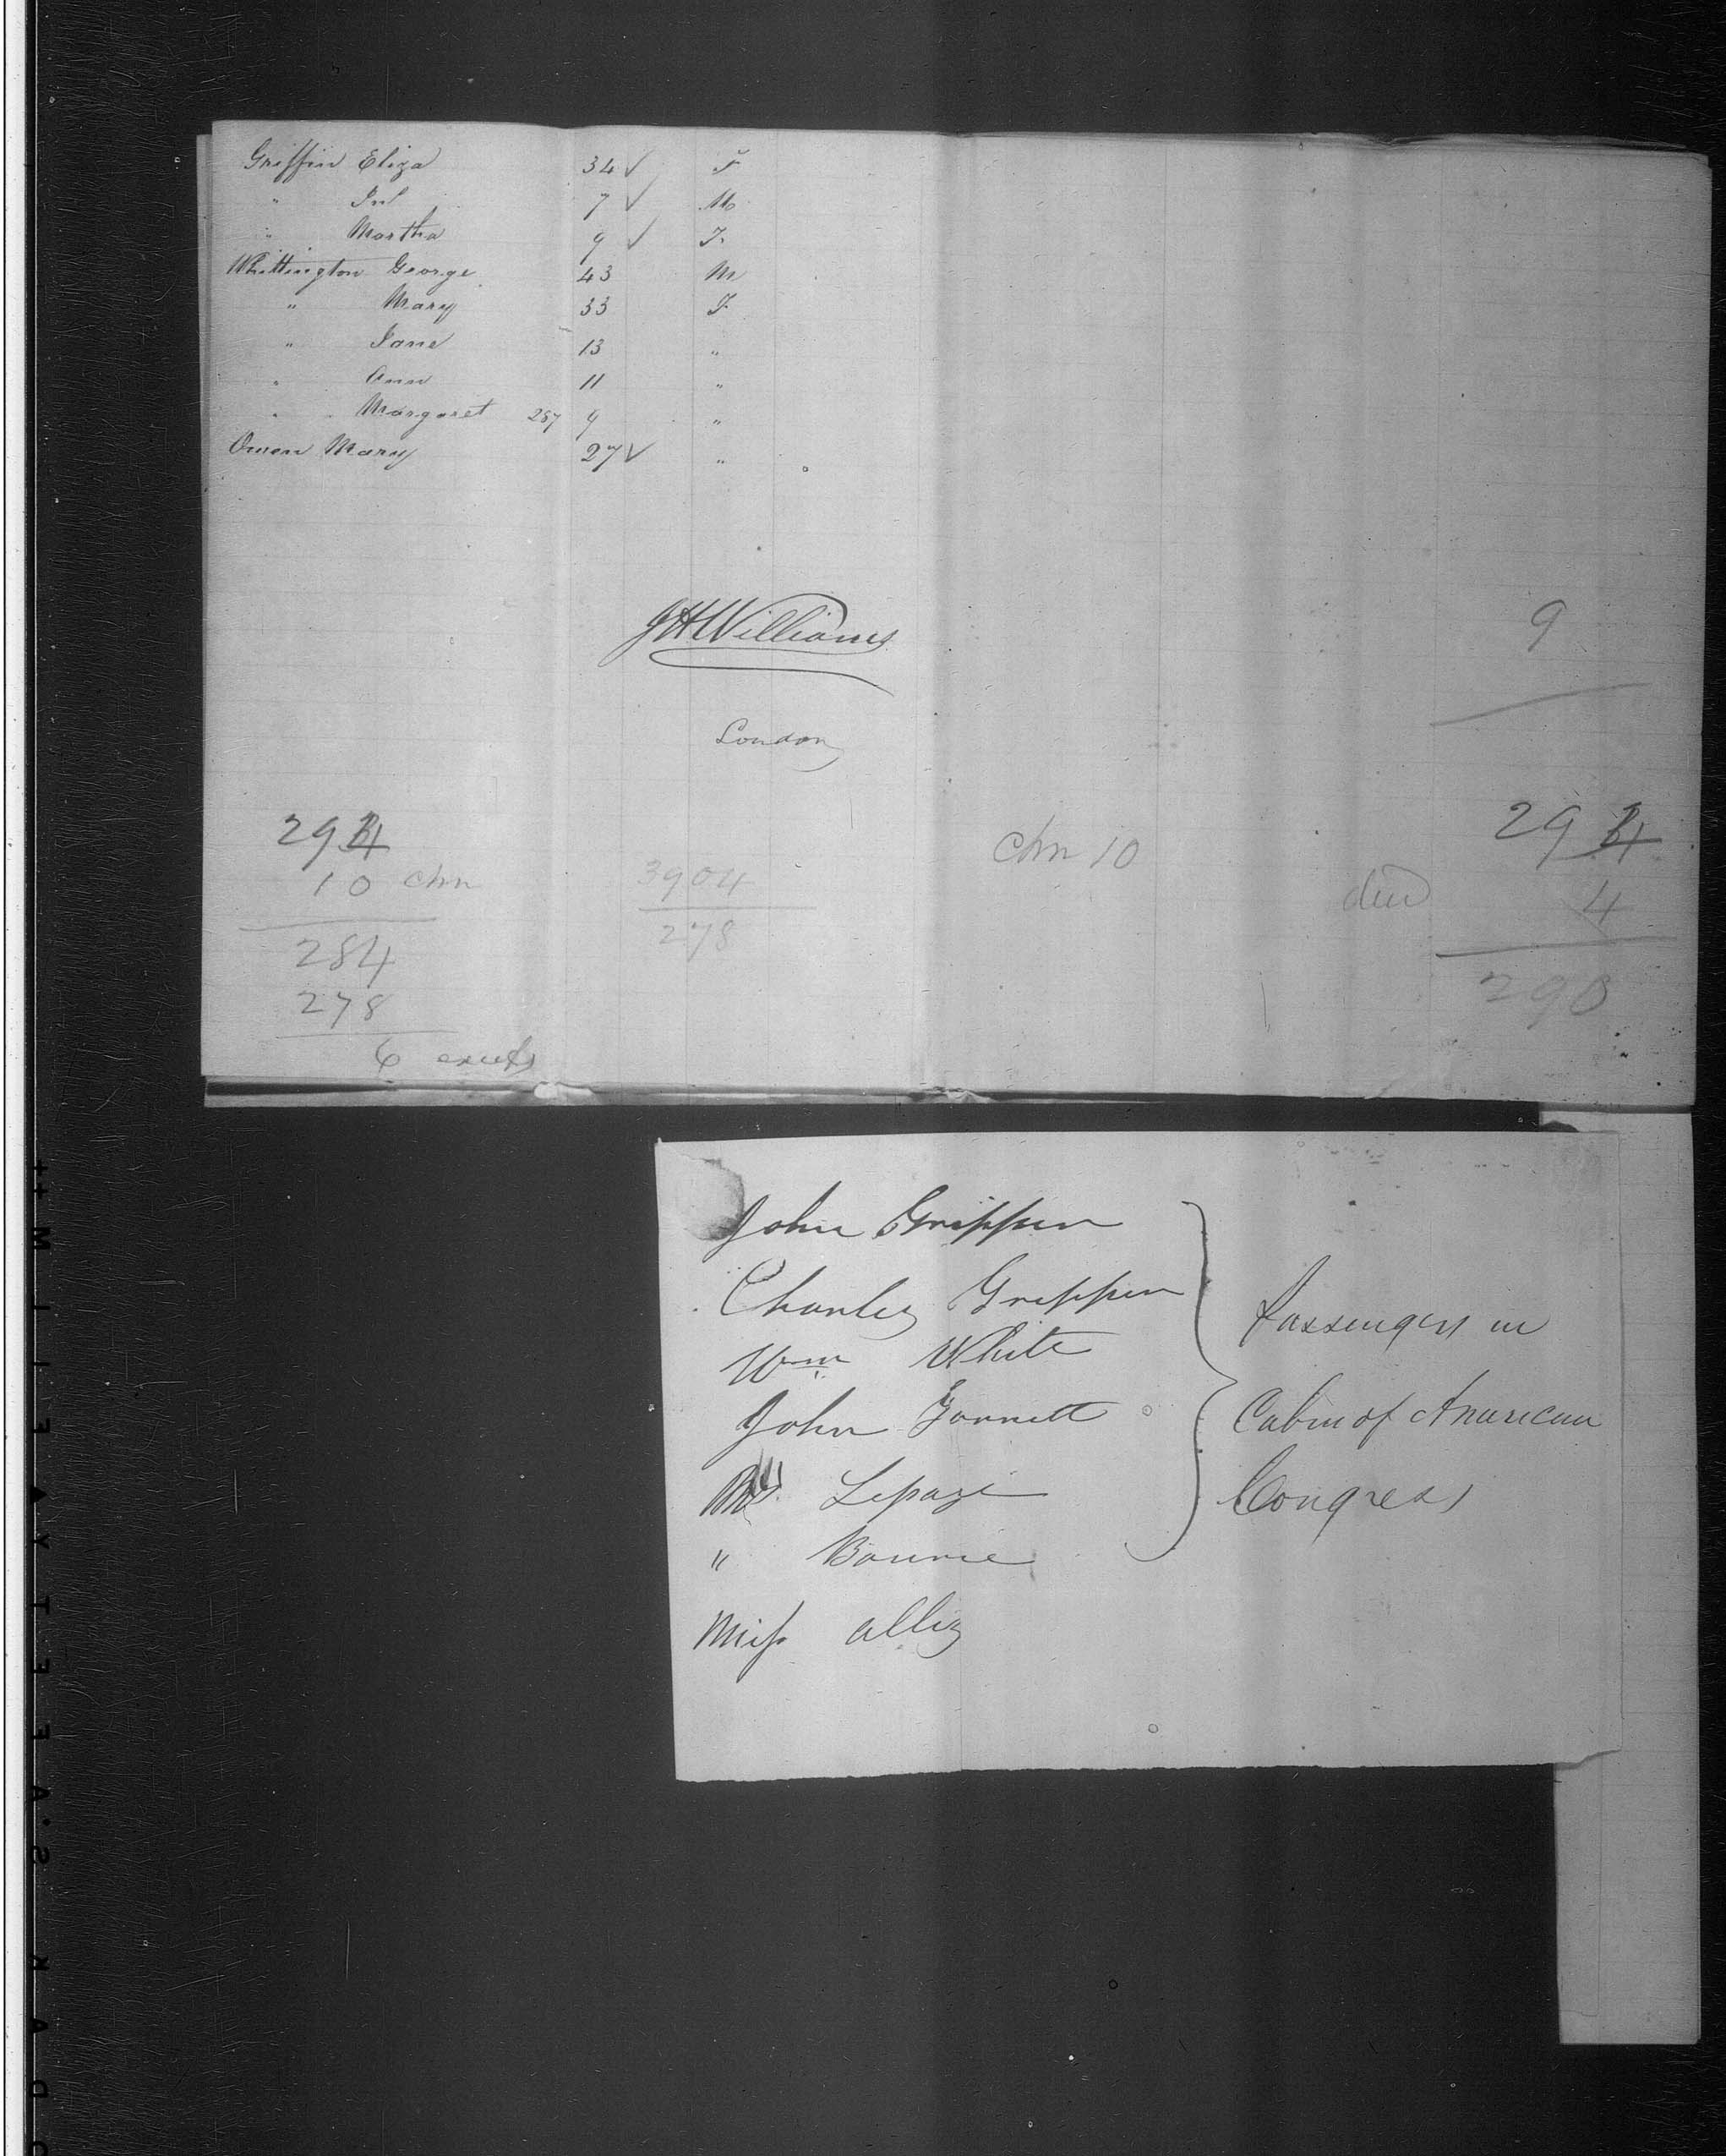 Griffin Eliza 34 ✓ F
" 7 ✓ M
" Martha 9 ✓ F.
Whittington George 43 M
" Mary 33 F
" Jane 13 "
" Ann 11 "
" Margaret 287 9 "
Owen Mary 27 ✓ "
JHWilliams
London
9
294
10 chn
284
278
6
3904
278
chn 10
294
4
290
John Grippen
Charley Grippen
Wm White
John
Lepage
" Bourne
Miss
Passengers in
Cabin of American
Congress